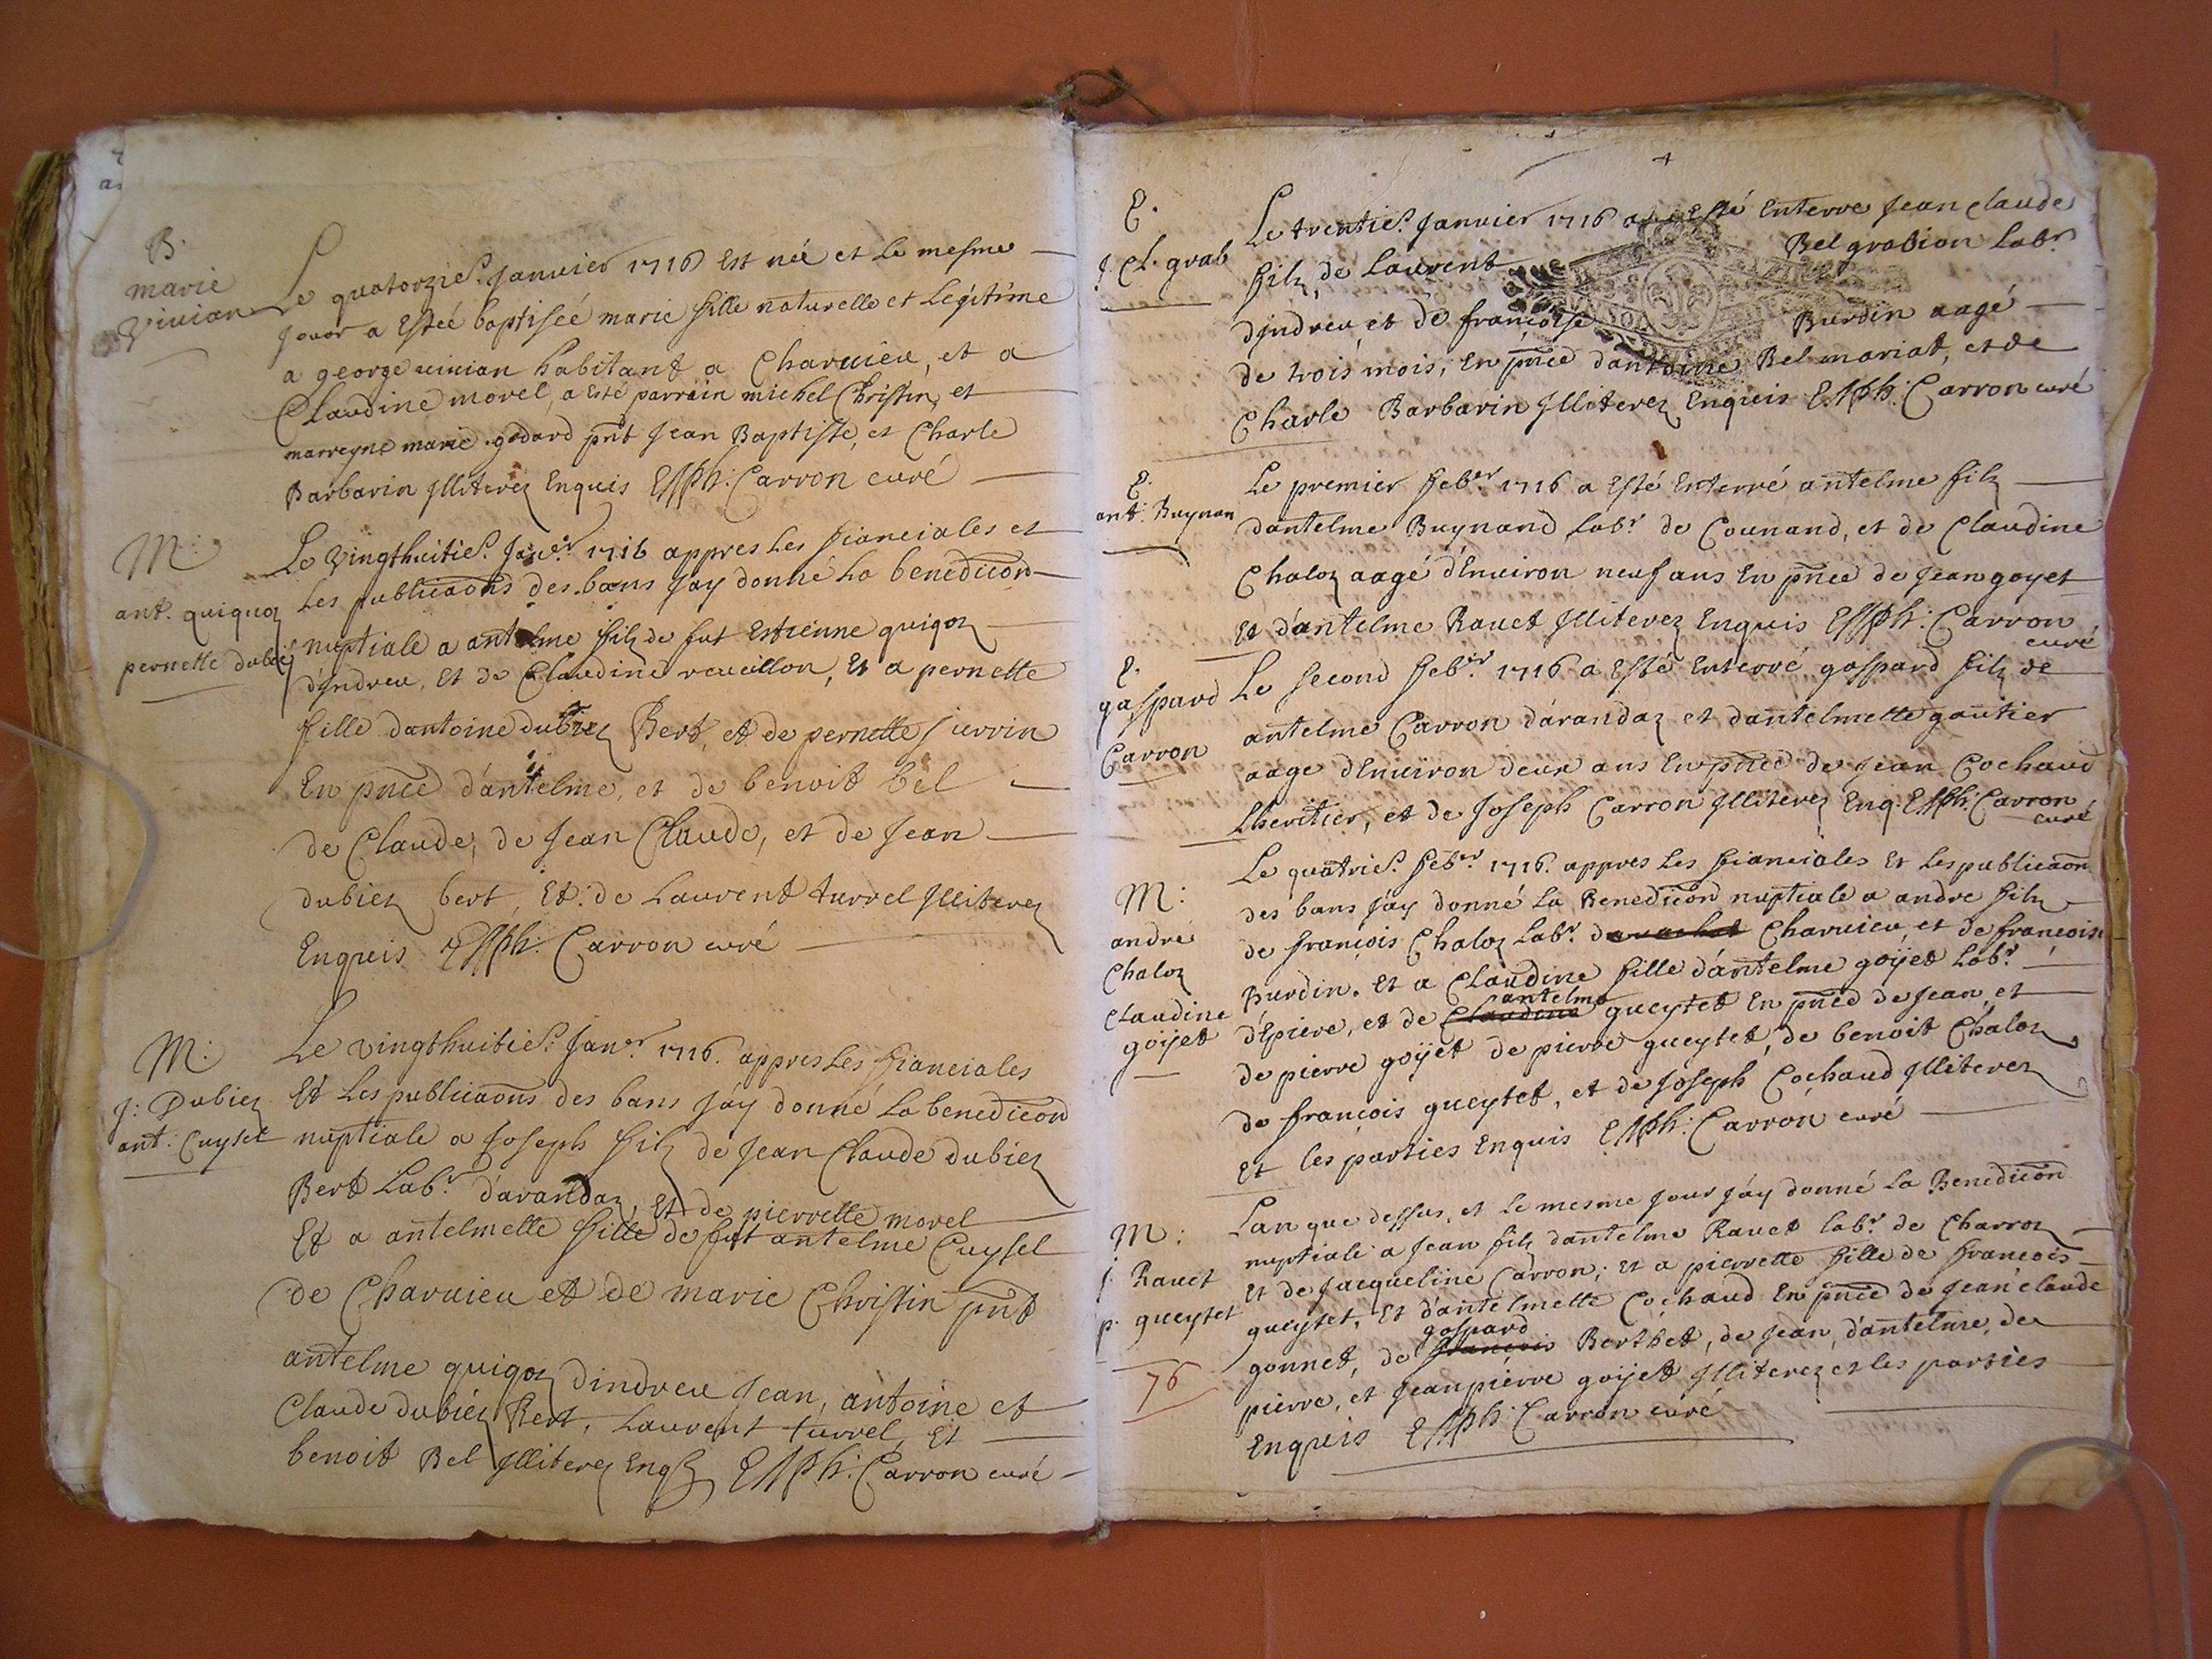 B.
marie
Vivian
Le quatorzie. Janvier 1716 Est née et Le mesme
Jour a Esteé baptiséé marie fille naturelle et Legitime
a george vivian habitant a Charvieu, et a
Claudine morel, a esté parrain michel Christin, et
marreyne marie godard pnt Jean Baptiste, et Charle
Barbarin Jlliterez Enquis EJJph: Carron curé
M:
ant. quiquoz
pernette dubiez
Le vingthuitie. Janer. 1716 appres Les fianciales et
Les publicaons des bans Jay donné La benedicon
nuptiale a antelme filz de fut Estienne guigoz
d'Jndreu, et de Claudine reveillon, et a pernette
fille dantoine dubiez Bert, et de pernette
En pnce d'antelme, et de benoit bel
de Claude, de Jean Claude, et de Jean
dubiez bert, Et: de Laurent turrel Jlliterez
Enqueis EJJph: Carron curé
M:
J: Dubiez
ant: Cuysel
Le vingthuitie. Janer. 1716. appres Les fianciales
Et Les publicaons des bans Jáy donné La benedicon
nuptiale a Joseph filz de Jean Claude dubiez
Bert Labr. d'arandaz, Et de pierrette morel
Et a antelmette fille de fut antelme Cuysel
de Charvieu et de marie Christin pnt
antelme guigoz dindreu Jean, antoine et
Claude dubiez Bert, Laurent turrel, Et
benoit Bel Jlliterez Enq EJJph: Carron curé
E.
J. Cl. grab
Le trentie. Janvier 1716 a Esté Enterre Jean Claude
filz de Laurent Bel grabion Labr
d'Jndreu et de francoise Burdin aagé
de trois mois, En pnce dantoine Bel mariat, et de
Charle Barbarin Jlliterez Enqueis EJJph: Carron curé
E.
ant: Buynan
Le premier feber 1716 a Esté Enterré antelme filz
dantelme Buynand Labr. de Counand, et de Claudine
Chaloz aagé d'Environ neuf ans En pnce de Jean goyet
Et d'antelme Ravet Jlliterez Enquis EJJph: Carron
curé
E.
gaspard
Carron
Le second feber. 1716 a Esté Enterré gaspard filz de
antelme Carron d'arandaz et dantelmette gautier
aage d'Environ deux ans En pnce de Jean Cochaud
Lheritier, et de Joseph Carron Jlliterez Enq. EJJph: Carron
curé
M:
andré
Chaloz
Claudine
goijet
Le quatrie. feber. 1716. appres Les fianciales Et Les publicaon
des bans Jáy donné La Benedicon nuptiale a andre filz
de francois Chaloz Labr. Charvieu et de francoise
Burdin. Et a Claudine fille d'antelme goijet Labr.
antelme
d'Epierre, et de Claudine gueytet En pnce de Jean et
de pierre goijet de pierre gueytet, de benoit Chaloz
de francois gueytet, et de Joseph Cochaud Jlliterez
Et Les parties Enquis EJJph: Carron curé
M:
J. Ravet
p. gueytet
76
Lan que dessus, et Le mesme Jour Jáy donné La Benedicon
nuptiale a Jean filz dantelme Ravet labr. de Charroz
Et de Jacqueline Carron; Et a pierrette fille de francois
gueytet, Et d'antelmette Cochaud En pnce de Jean claude
gaspard
gonnet, de francois Berthet, de Jean, d'antelme, de
pierre, et Jean pierre goijet Jlliterez et les parties
Enqueis EJJph: Carron curé